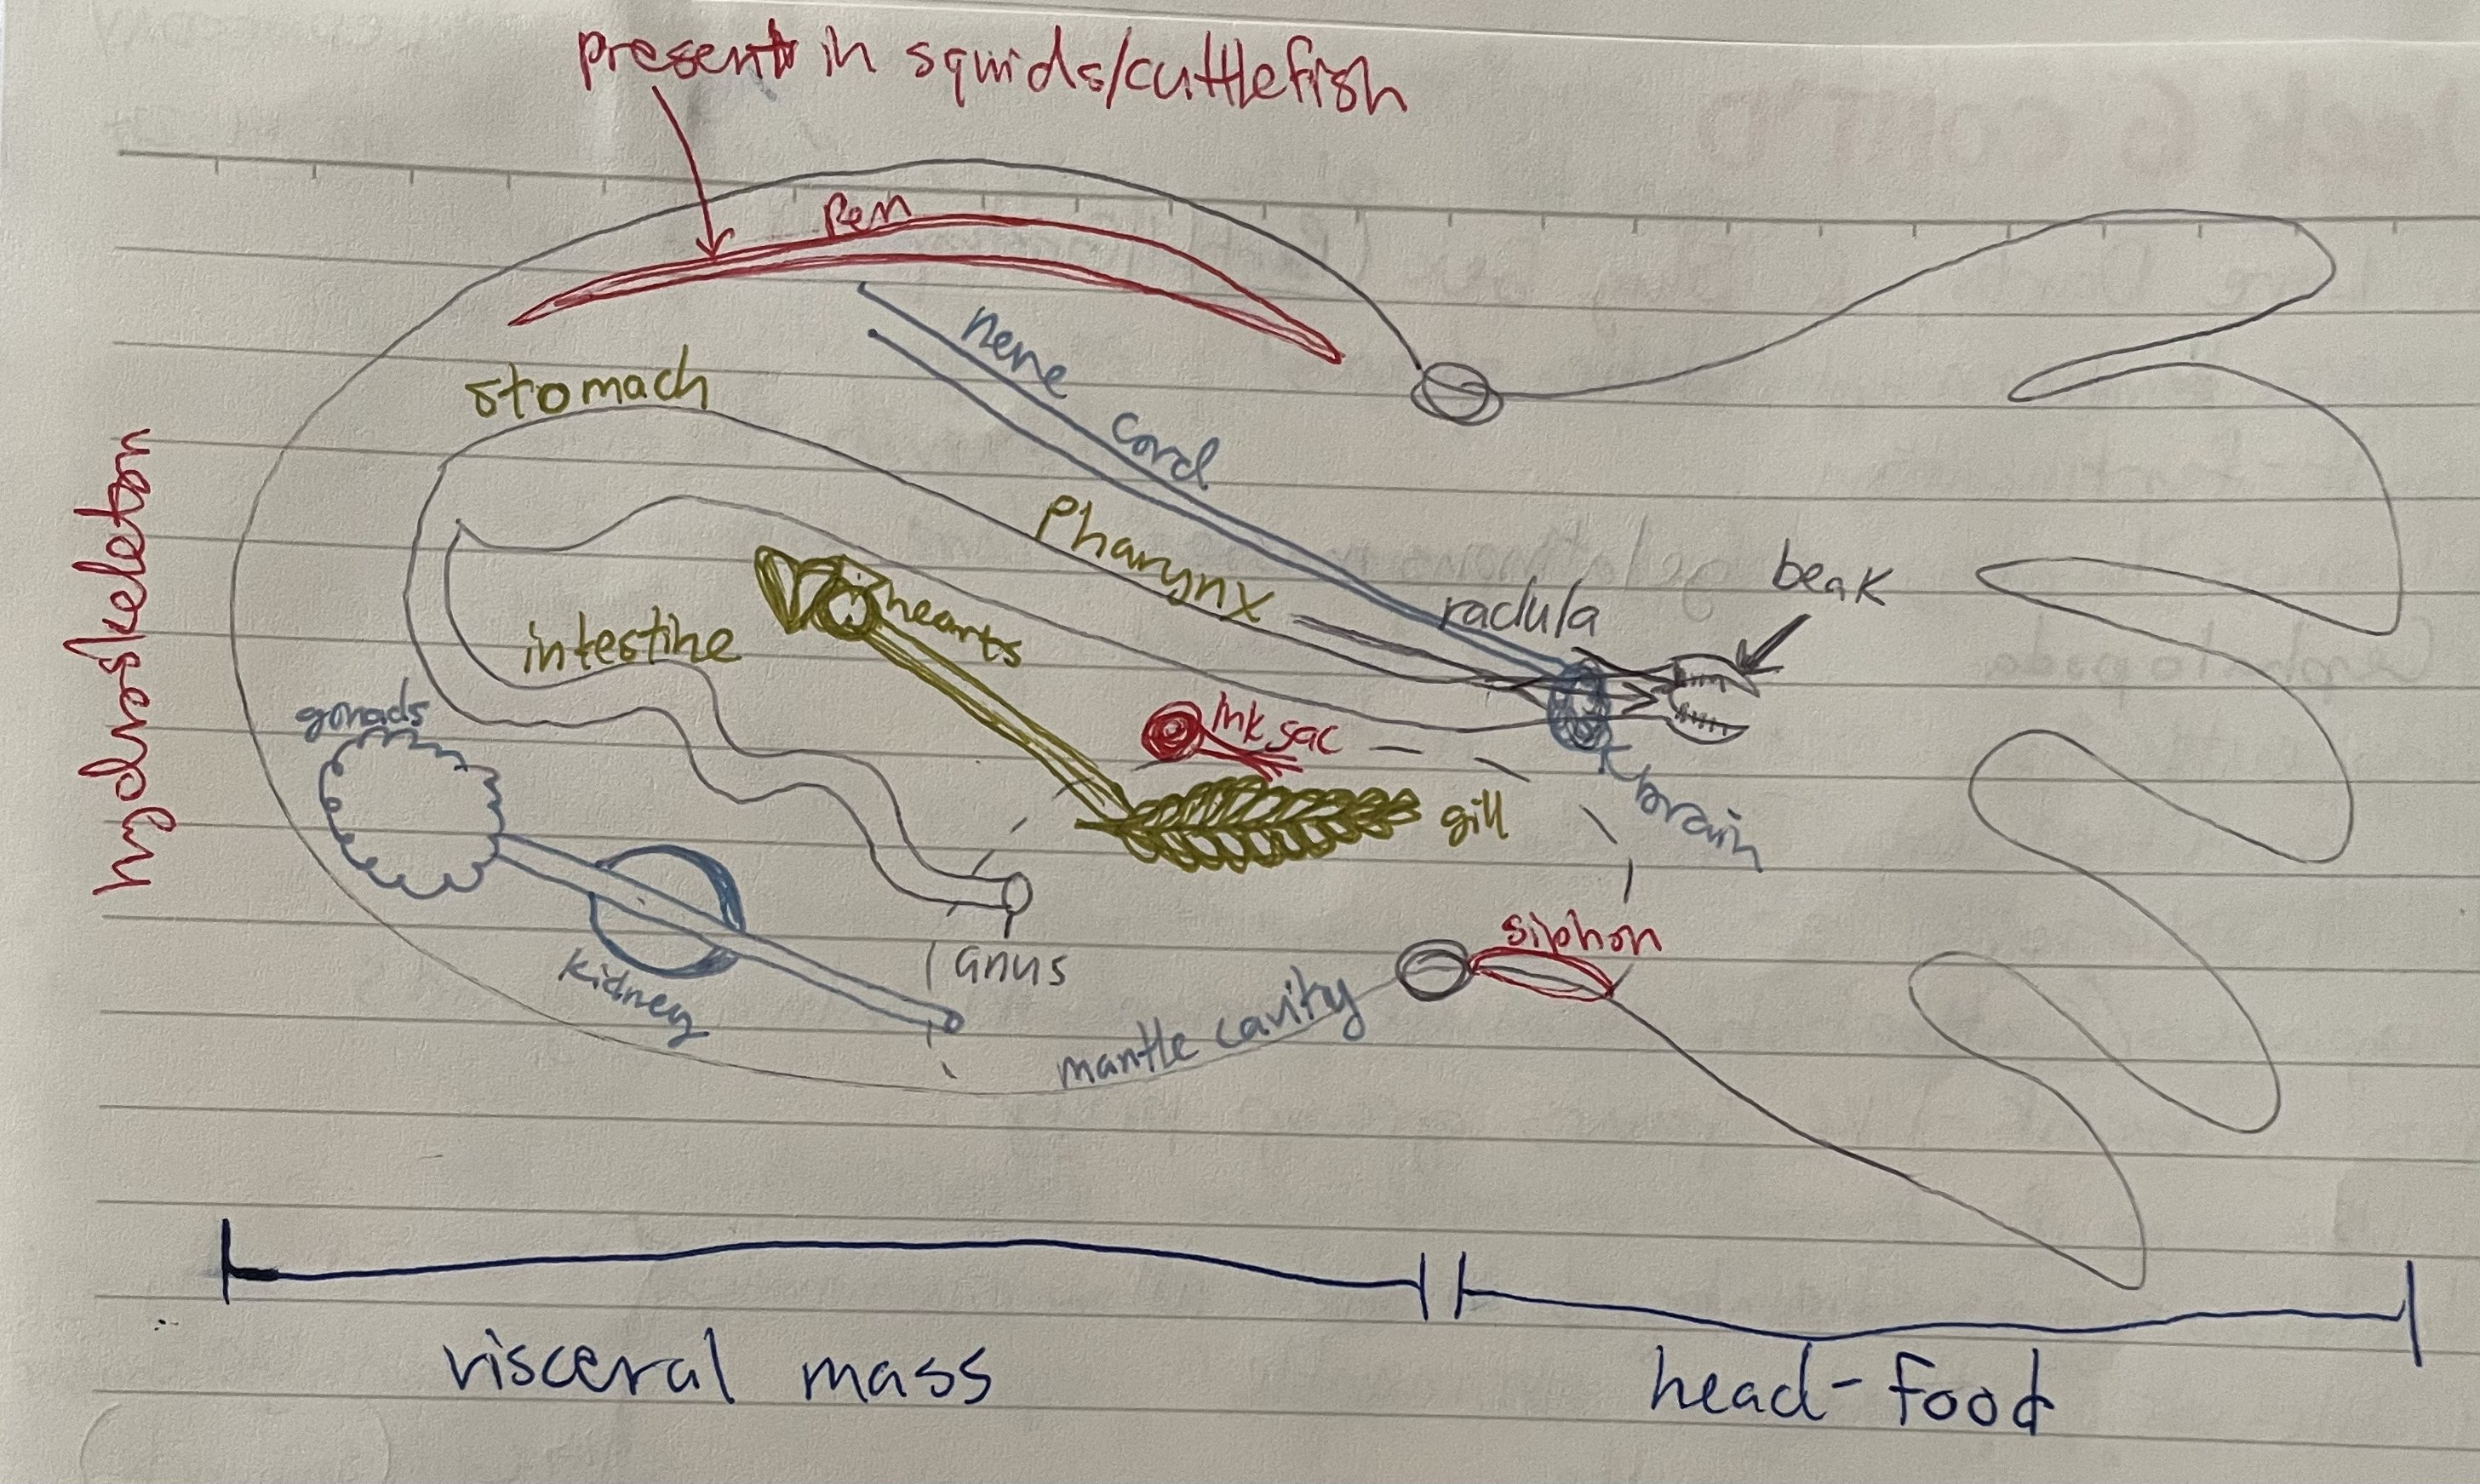 present in squids/cuttlefish
pen
nerve cord
stomach
Pharynx
radula
beak
hearts
intestine
hydroskeleton
gonads
ink sac
brain
gill
siphon
anus
kidney
mantle cavity
visceral mass
head-food